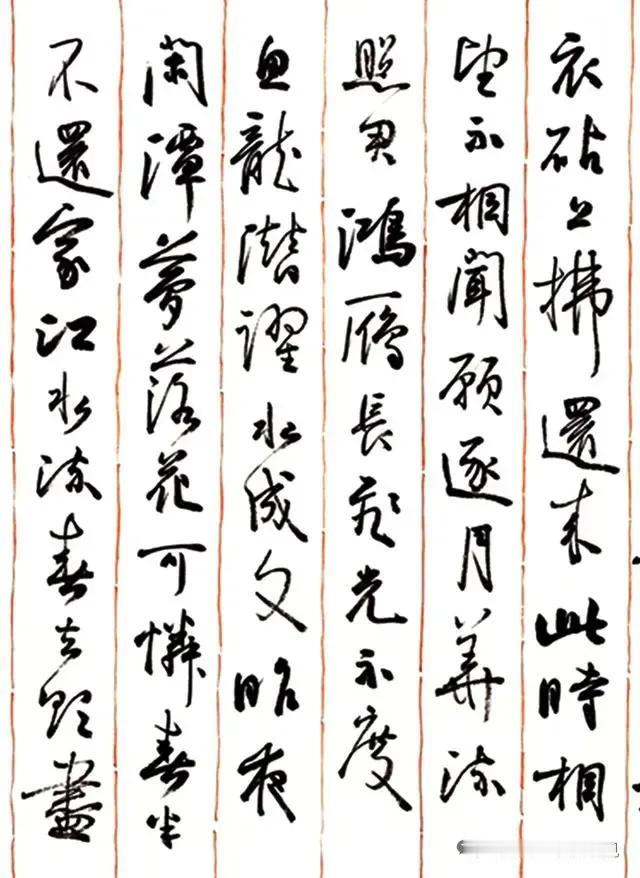 衣砧上拂還来此時相
望不相聞願逐月華流
照君鴻鴈長飛光不度
魚龍潛躍水成文昨夜
閑潭夢落花可憐春半
不還家江水流春去欲盡